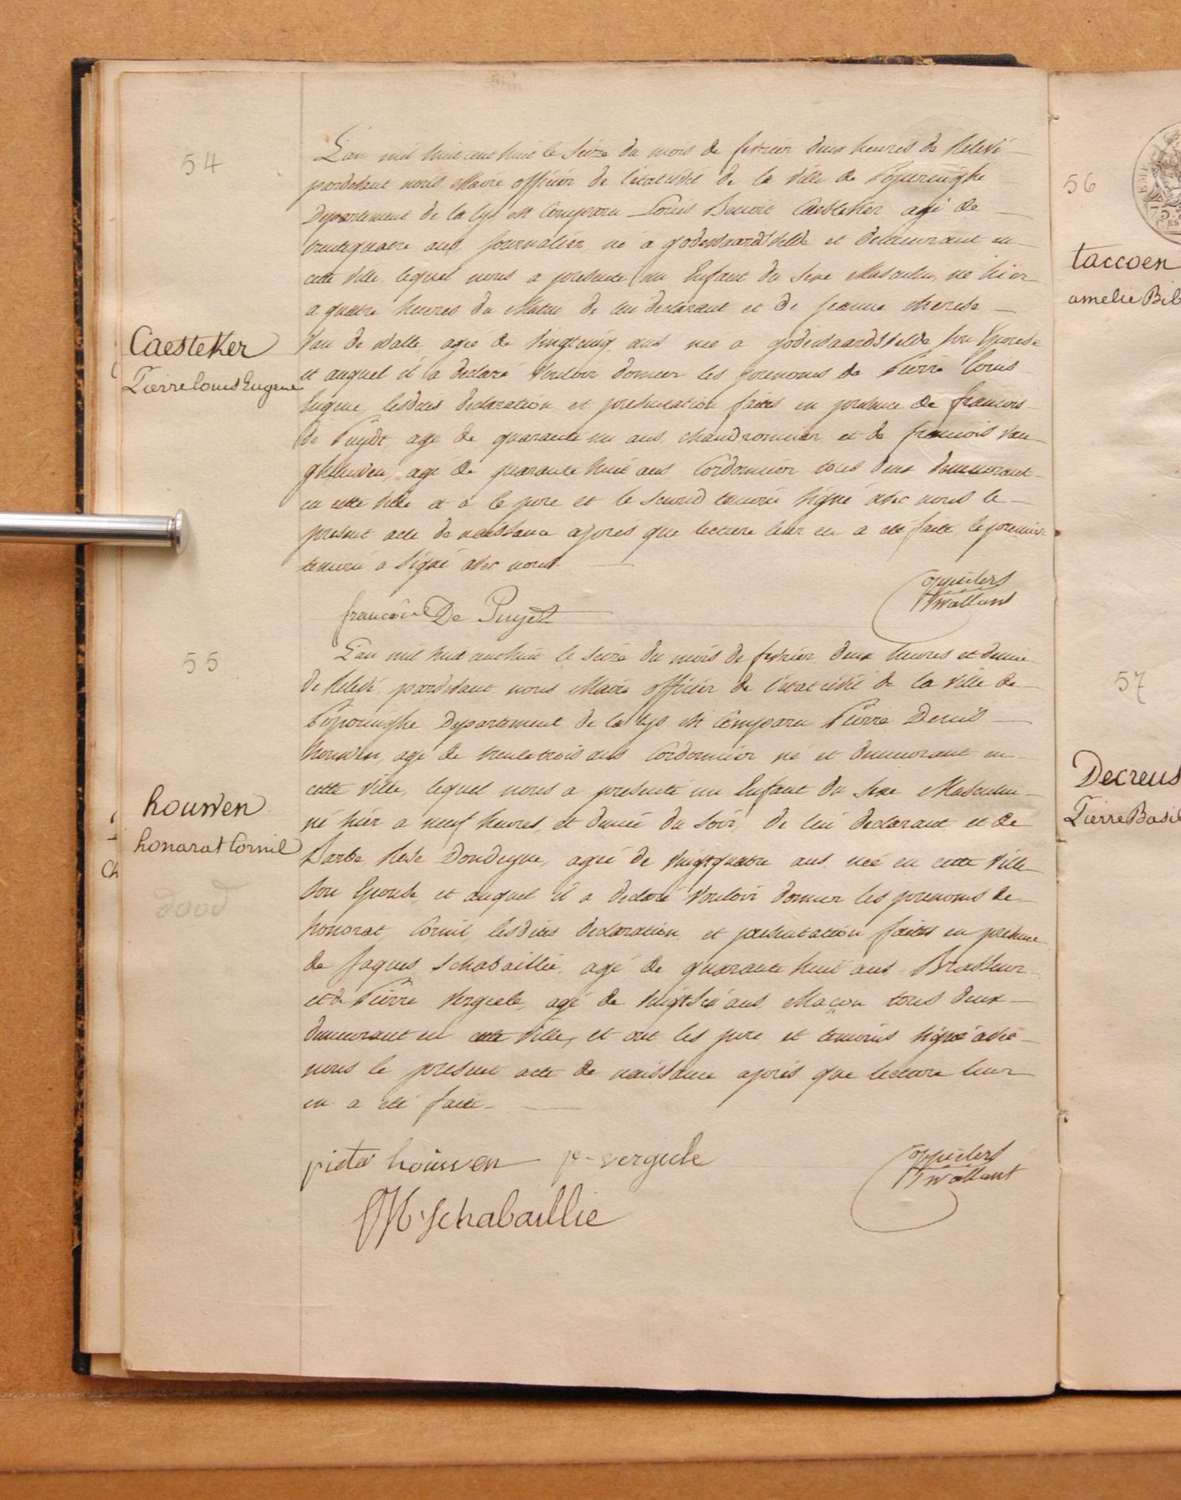 54
L'an mil huit cent huit le Seize du mois de fevrier deux heures de Relevé
pardevant nous Maire officier de l'etat civil de la Ville de Poperinghe
Departement de la Lys est Comparu Louis Benoit Caesteker agé de
trentequatre ans journalier né a godewaardsvelde et demeurant en
cette Ville, lequel nous a presenté un Enfant du Sexe Masculin, né hier
a quatre heures du Matin de lui declarant et de jeanne therese
Van de Walle agée de Vingtcinq ans née a godewaardsvelde Son Epouse
et auquel il a declaré Vouloir donner les prenoms de Pierre Louis
Eugene, lesdites declaration et presentation faites en presence de francois
De Puydt agé de quarante un ans, chaudronnier et de francois Van
agé de quarante huit ans Cordonnier tous deux demeurant
en cette Ville et a le pere et le Second temoin Signé avec nous le
present acte de naissance apres que lecture leur en a été faite, le premier
temoin a Signé avec nous
Caesteker
Pierre louis Eugene
françois De Puyd
55
L'an mil huit cent huit le Seize du mois de fevrier deux heures et demie
de Relevé, pardevant nous Maire officier de l'etat civil de la Ville de
Poperinghe Departement de la Lys est Comparu Pierre Denis
houwen, agé de trente trois ans Cordonnier né et demeurant en
cette Ville, lequel nous a presenté un Enfant du Sexe Masculin
né hier a neuf heures et demie du Soir, de lui declarant et de
Barbe agée de Vingtquatre ans née en cette Ville
Son Epouse, et auquel il a declaré Vouloir donner les prenoms de
honorat Cornil lesdites declaration et presentation faites en presence
de Jaques Schabaillie agé de quarante huit ans Brasseur
et de Pierre Vergucle, agé de Vingtsix ans Maçon tous deux
demeurant en cette Ville, et ont les pere et temoins Signé avec
nous le present acte de naissance après que lecture leur
en a été faite
houwen
honarat Cornil
dood
pieter houwen p-vergucle
Schabaillie
56
taccoen
amelie
57
Decreus
Pierre